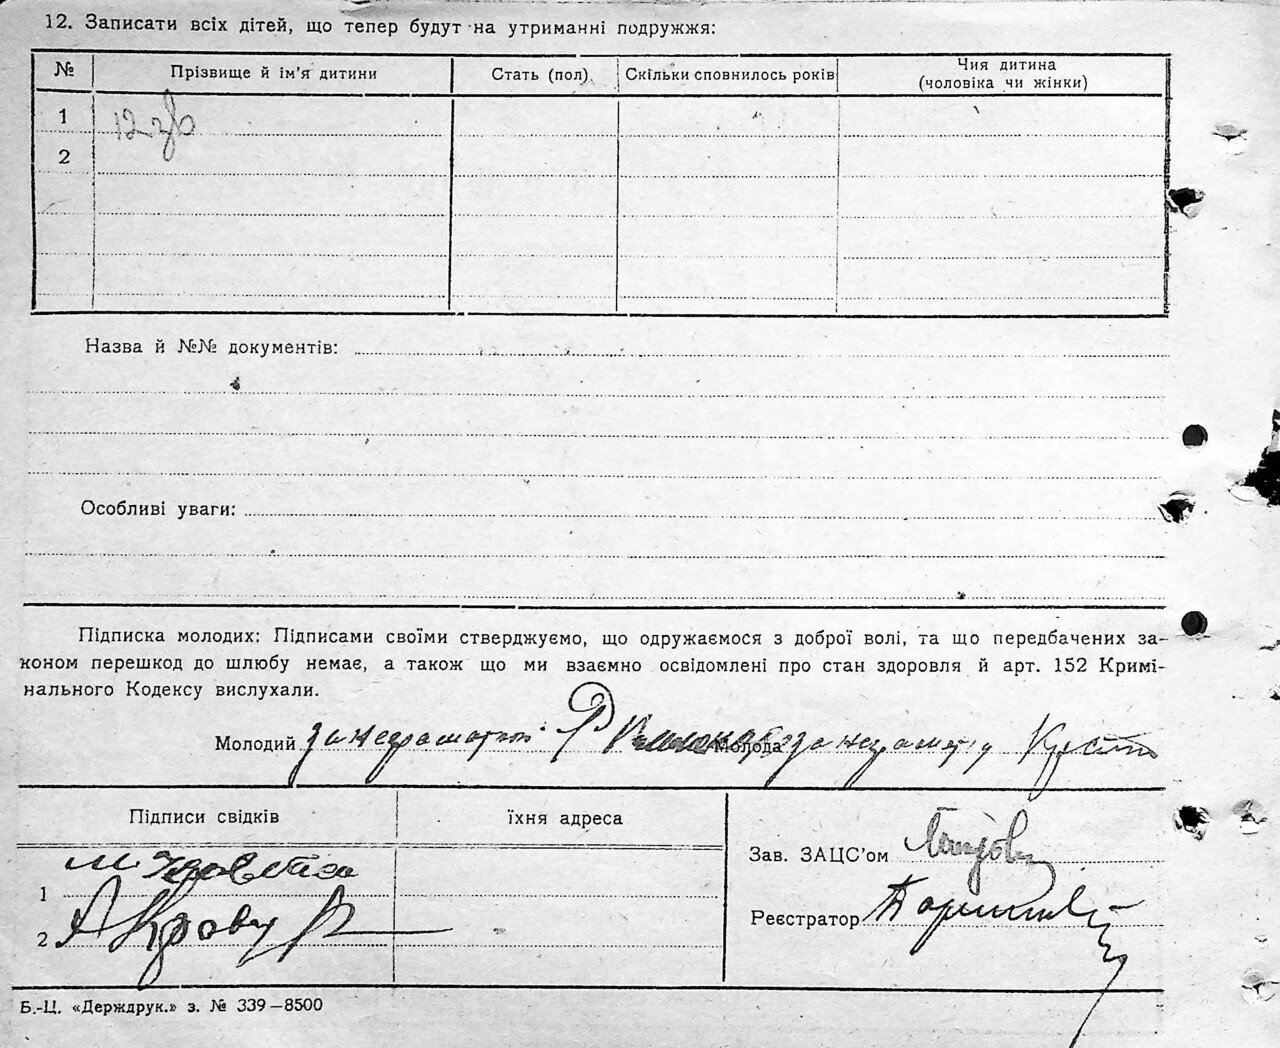 12. Записати всіх дітей, що тепер будут на утриманні подружжя:
№ Прізвище й ім'я дитини Стать (пол) Скільки сповнилось років Чия дитина (чоловіка чи жінки)
1
2
Назва й №№ документів:
Особливі уваги:
Підписка молодих: Підписами своїми стверджуємо, що одружаємося з доброї волі, та що передбачених за-
коном перешкод до шлюбу немає, а також що ми взаємно освідомлені про стан здоровля й арт. 152 Кримі-
нального Кодексу вислухали.
Молодий за неграмотної Молода за неграмотну
Підписи свідків їхня адреса
Зав. ЗАЦС'ом
1
Реєстратор
2
Б.-Ц. «Держдрук.» з. № 339—8500